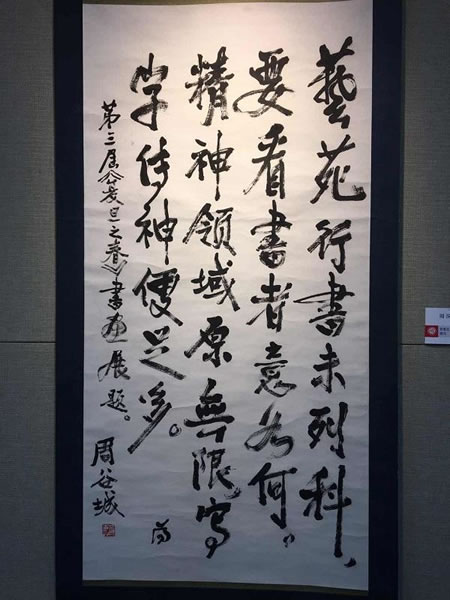 藝苑行書未列科、
要看書者意如何。
精神领域原無限,寫
字传神便足多。为
第三届《复旦之春》書画展题。周谷城